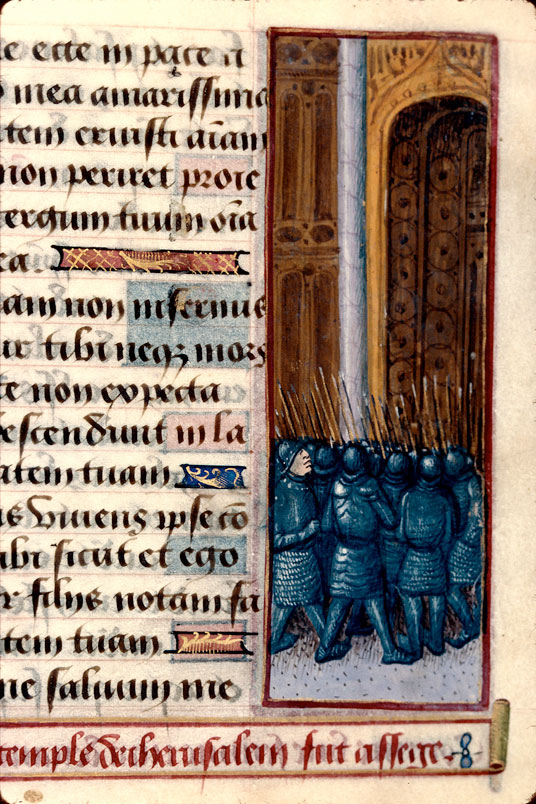 ecce in pace a
mea amarissima
tem eruisti aīam
non periret proie
tergum tuum oīa
ea
am non infernus
ur tibi neq; mors
te non expecta
descendunt in la
atem tuam
us viuens ipse cō
ibi sicut et ego
r filijs notam fa
tem tuam
ne saluum me
temple de iherusalem fut assege